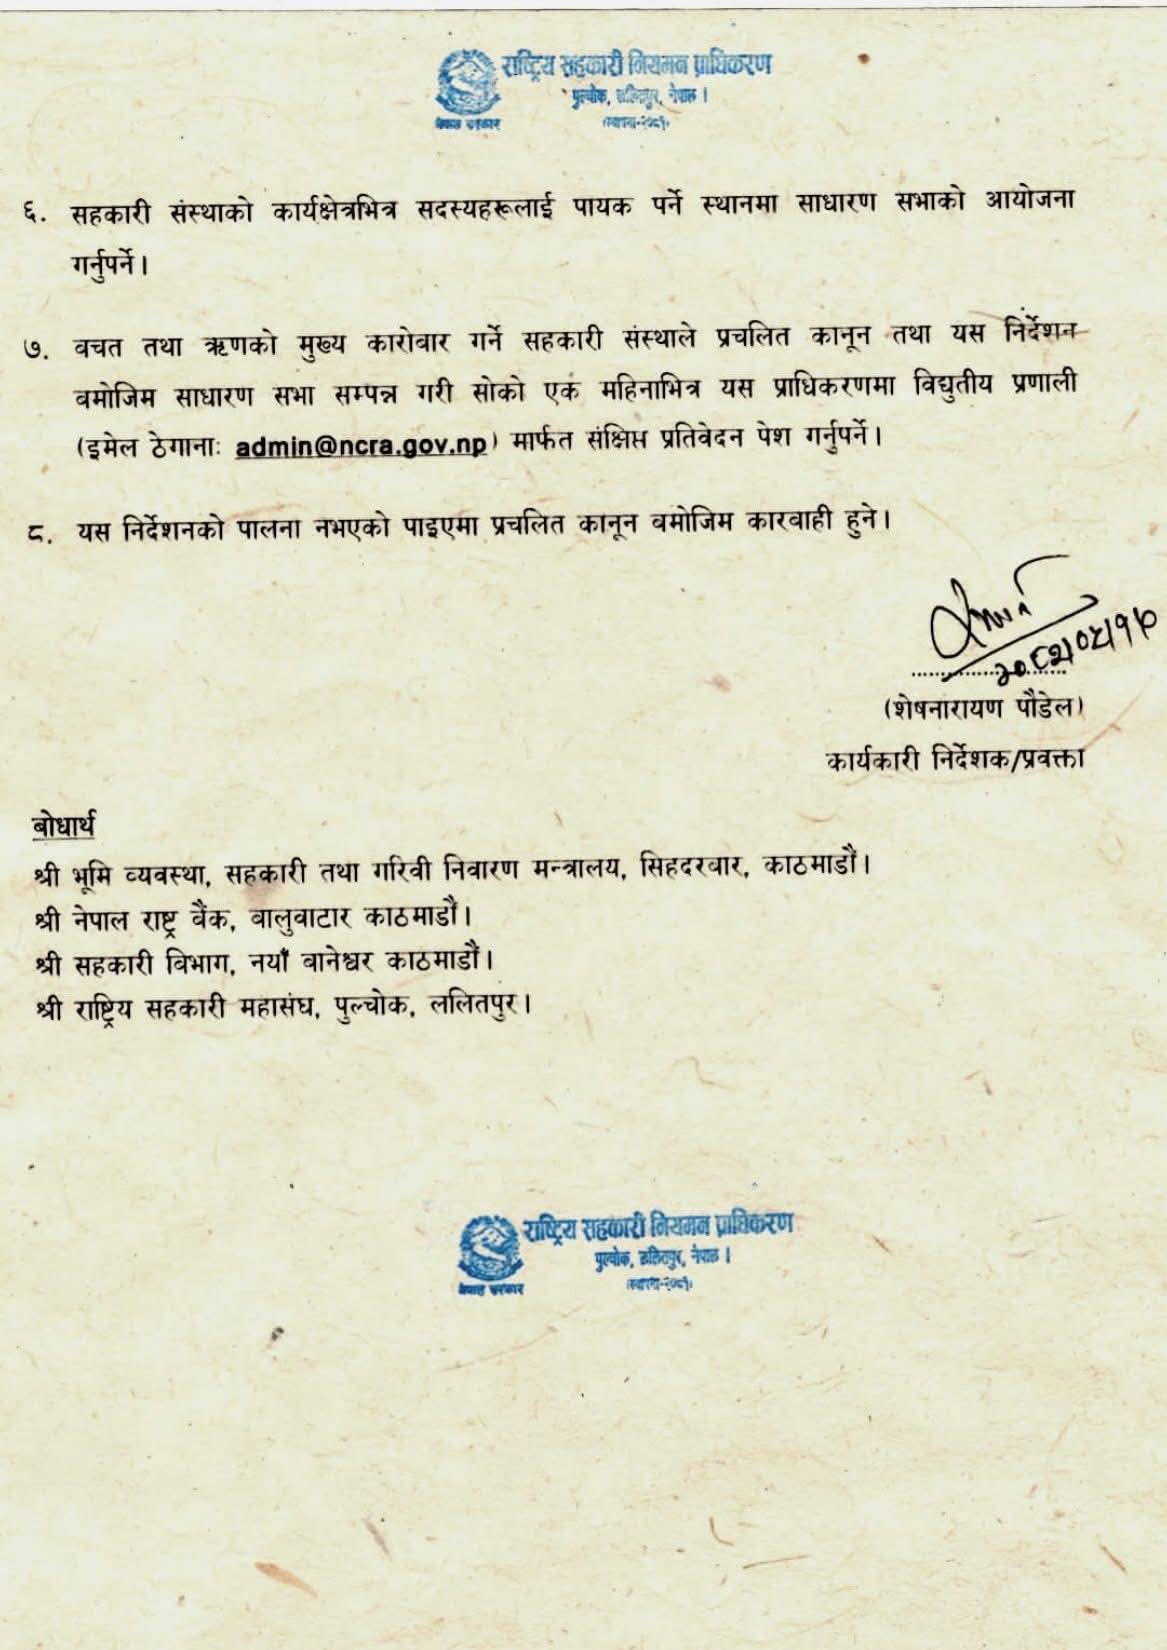 राष्ट्रिय सहकारी नियमन प्राधिकरण
पुल्चोक, ललितपुर, नेपाल ।
नेपाल सरकार
(स्थापना-२०८१)
६. सहकारी संस्थाको कार्यक्षेत्रभित्र सदस्यहरूलाई पायक पर्ने स्थानमा साधारण सभाको आयोजना
गर्नुपर्ने।
७. बचत तथा ऋणको मुख्य कारोवार गर्ने सहकारी संस्थाले प्रचलित कानून तथा यस निर्देशन
बमोजिम साधारण सभा सम्पन्न गरी सोको एक महिनाभित्र यस प्राधिकरणमा विद्युतीय प्रणाली
(इमेल ठेगानाः admin@ncra.gov.np) मार्फत संक्षिप्त प्रतिवेदन पेश गर्नुपर्ने।
८. यस निर्देशनको पालना नभएको पाइएमा प्रचलित कानून बमोजिम कारबाही हुने।
(शेषनारायण पौडेल)
कार्यकारी निर्देशक/प्रवक्ता
बोधार्थ
श्री भूमि व्यवस्था, सहकारी तथा गरिवी निवारण मन्त्रालय, सिंहदरबार, काठमाडौं।
श्री नेपाल राष्ट्र बैंक, बालुवाटार काठमाडौं।
श्री सहकारी विभाग, नयाँ बानेश्वर काठमाडौं।
श्री राष्ट्रिय सहकारी महासंघ, पुल्चोक, ललितपुर।
राष्ट्रिय सहकारी नियमन प्राधिकरण
पुल्चोक, ललितपुर, नेपाल ।
नेपाल सरकार
(स्थापना-२०८१)